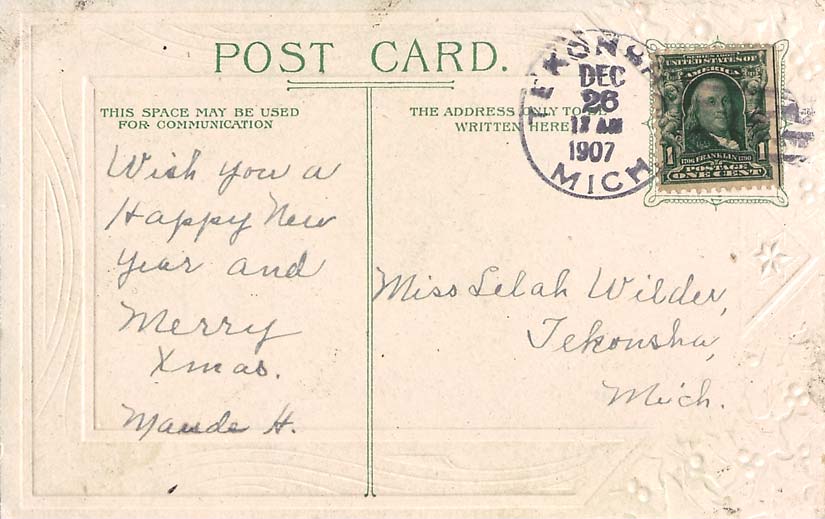 POST CARD.
THIS SPACE MAY BE USED
FOR COMMUNICATION
THE ADDRESS ONLY TO BE
WRITTEN HERE
TEKONSHA
DEC
26
MICH
1907
UNITED STATES OF
AMERICA
1 1
1706 FRANKLIN 1790
POSTAGE
ONE CENT
Wish you a
Happy New
Year and
Merry
Xmas.
Maude H.
Miss Lelah Wilder,
Tekonsha,
Mich.